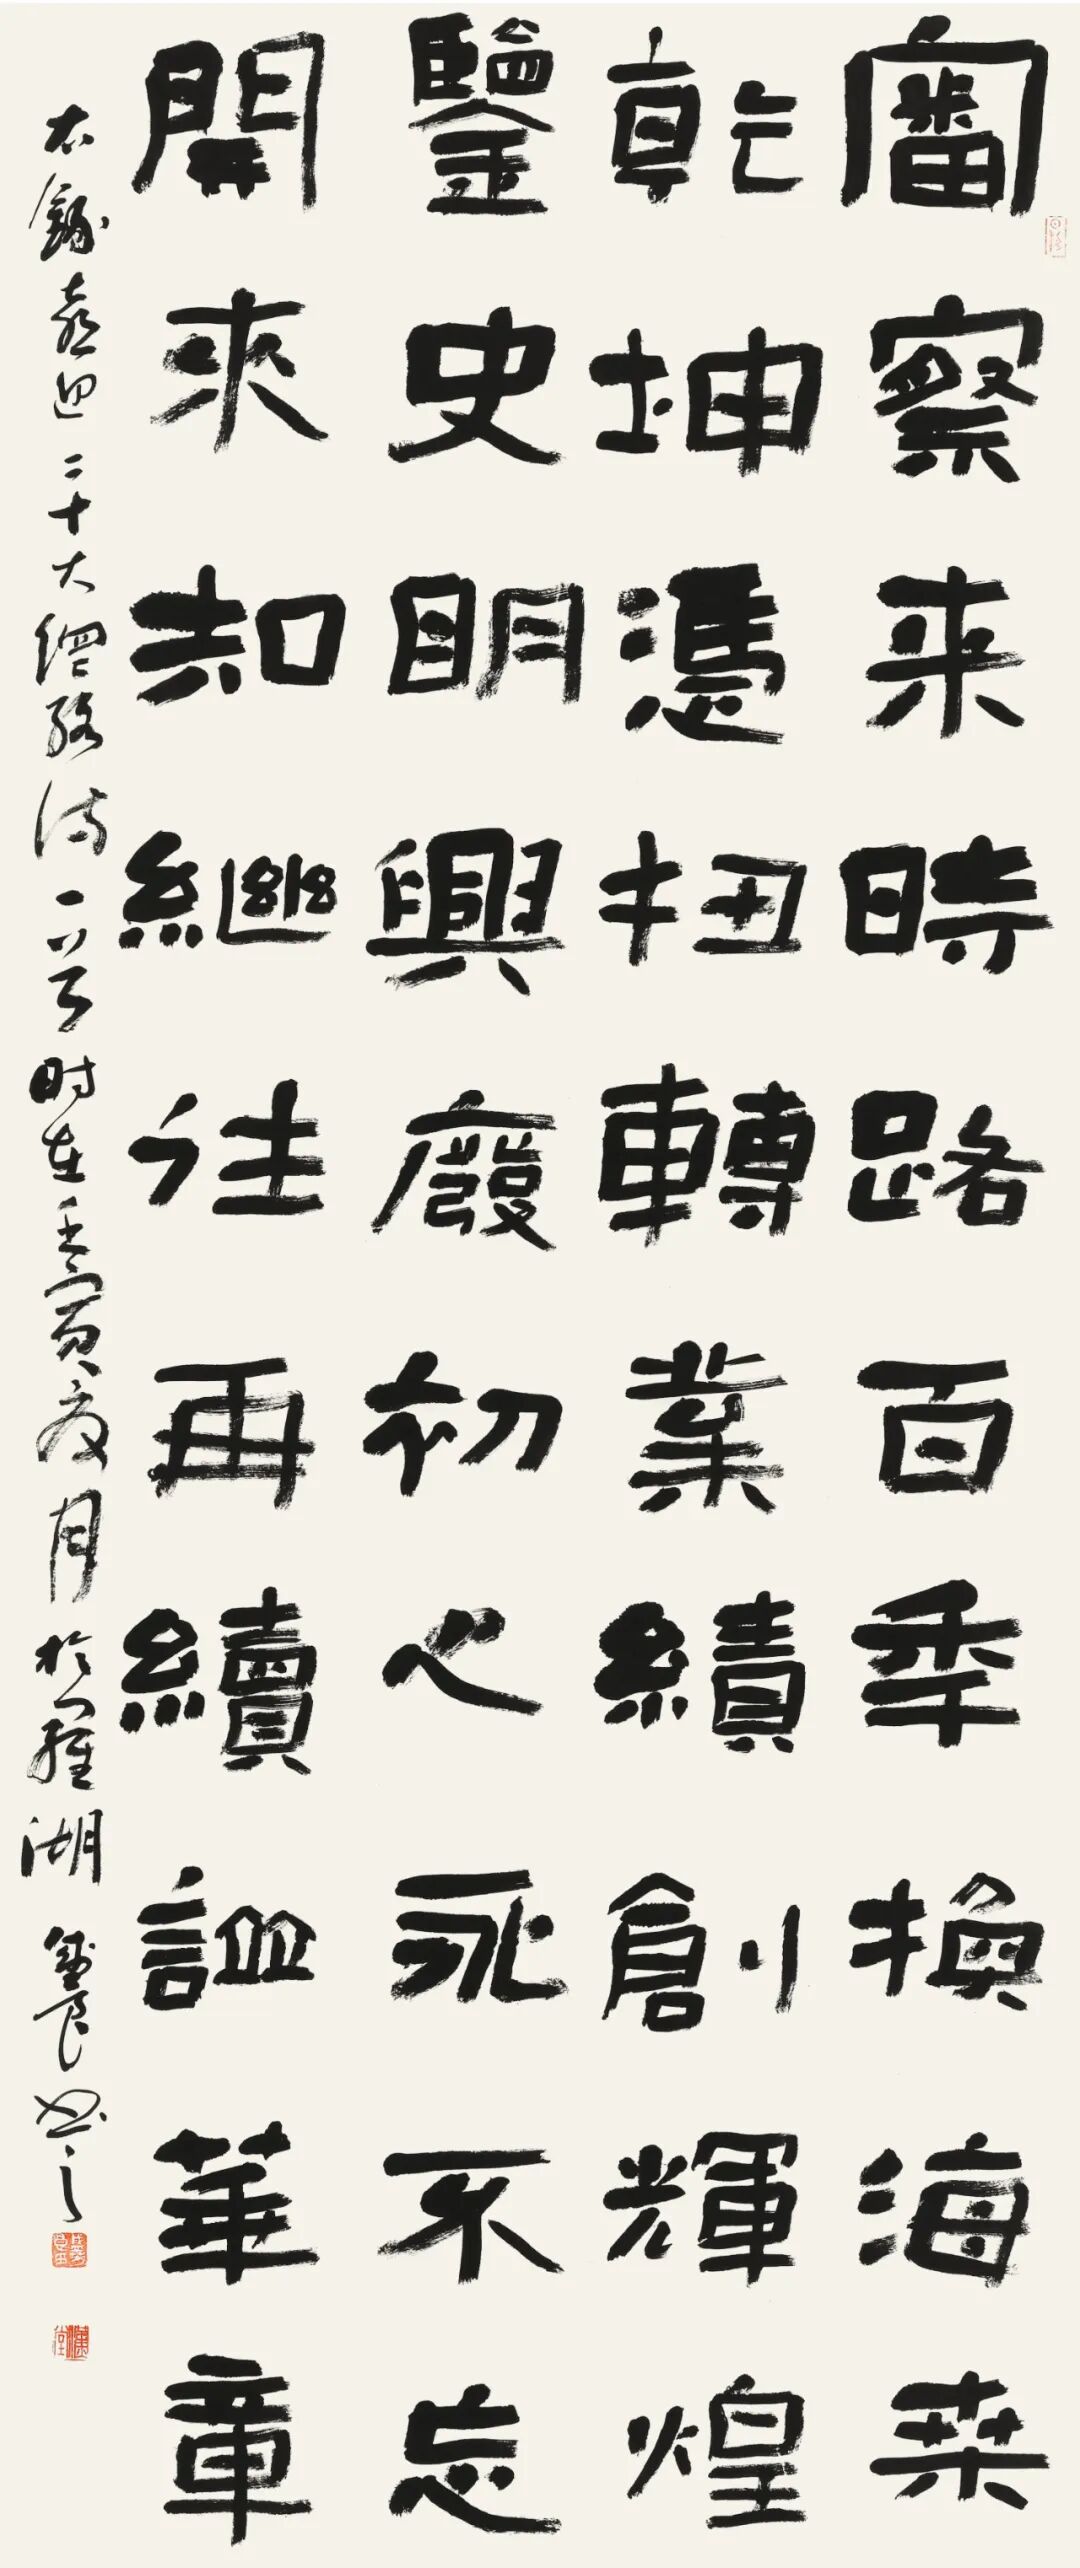 審察来時路百年換海桑
乾坤憑扭轉業績創輝煌
鑒史明興廢初心永不忘
開來知繼往再續譜華章
右錄喜迎二十大網絡詩一首时在壬寅夏月於羅湖良书之